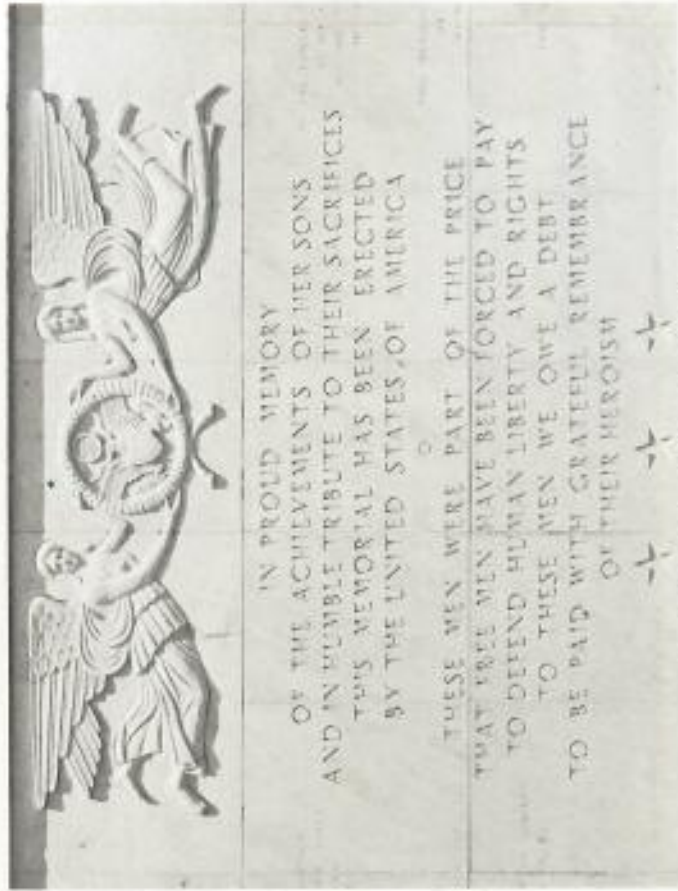 IN PROUD MEMORY
OF THE ACHIEVEMENTS OF HER SONS
AND IN HUMBLE TRIBUTE TO THEIR SACRIFICES
THIS MEMORIAL HAS BEEN ERECTED
BY THE UNITED STATES OF AMERICA
THESE MEN WERE PART OF THE PRICE
THAT FREE MEN HAVE BEEN FORCED TO PAY
TO DEFEND HUMAN LIBERTY AND RIGHTS
TO THESE MEN WE OWE A DEBT
TO BE PAID WITH GRATEFUL REMEMBRANCE
OF THEIR HEROISM